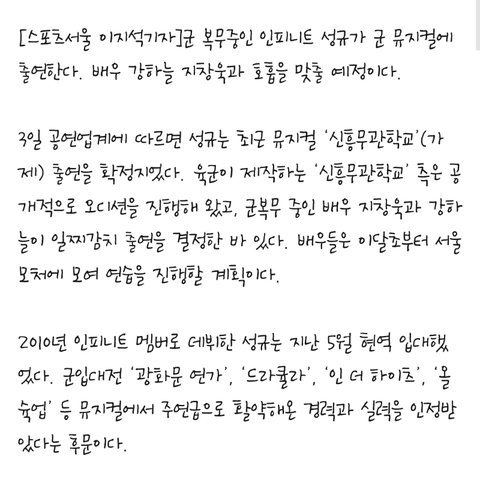 [스포츠서울 이지석기자]군 복무중인 인피니트 성규가 군 뮤지컬에
출연한다. 배우 강하늘 지창욱과 호흡을 맞출 예정이다.
3일 공연업계에 따르면 성규는 최근 뮤지컬 ‘신흥무관학교’(가
제) 출연을 확정지었다. 육군이 제작하는 ‘신흥무관학교’ 측은 공
개적으로 오디션을 진행해 왔고, 군복무 중인 배우 지창욱과 강하
늘이 일찌감치 출연을 결정한 바 있다. 배우들은 이달초부터 서울
모처에 모여 연습을 진행할 계획이다.
2010년 인피니트 멤버로 데뷔한 성규는 지난 5월 현역 입대했
었다. 군입대전 ‘광화문 연가’, ‘드라큘라’, ‘인 더 하이츠’, ‘올
슉업’ 등 뮤지컬에서 주연급으로 활약해온 경력과 실력을 인정받
았다는 후문이다.